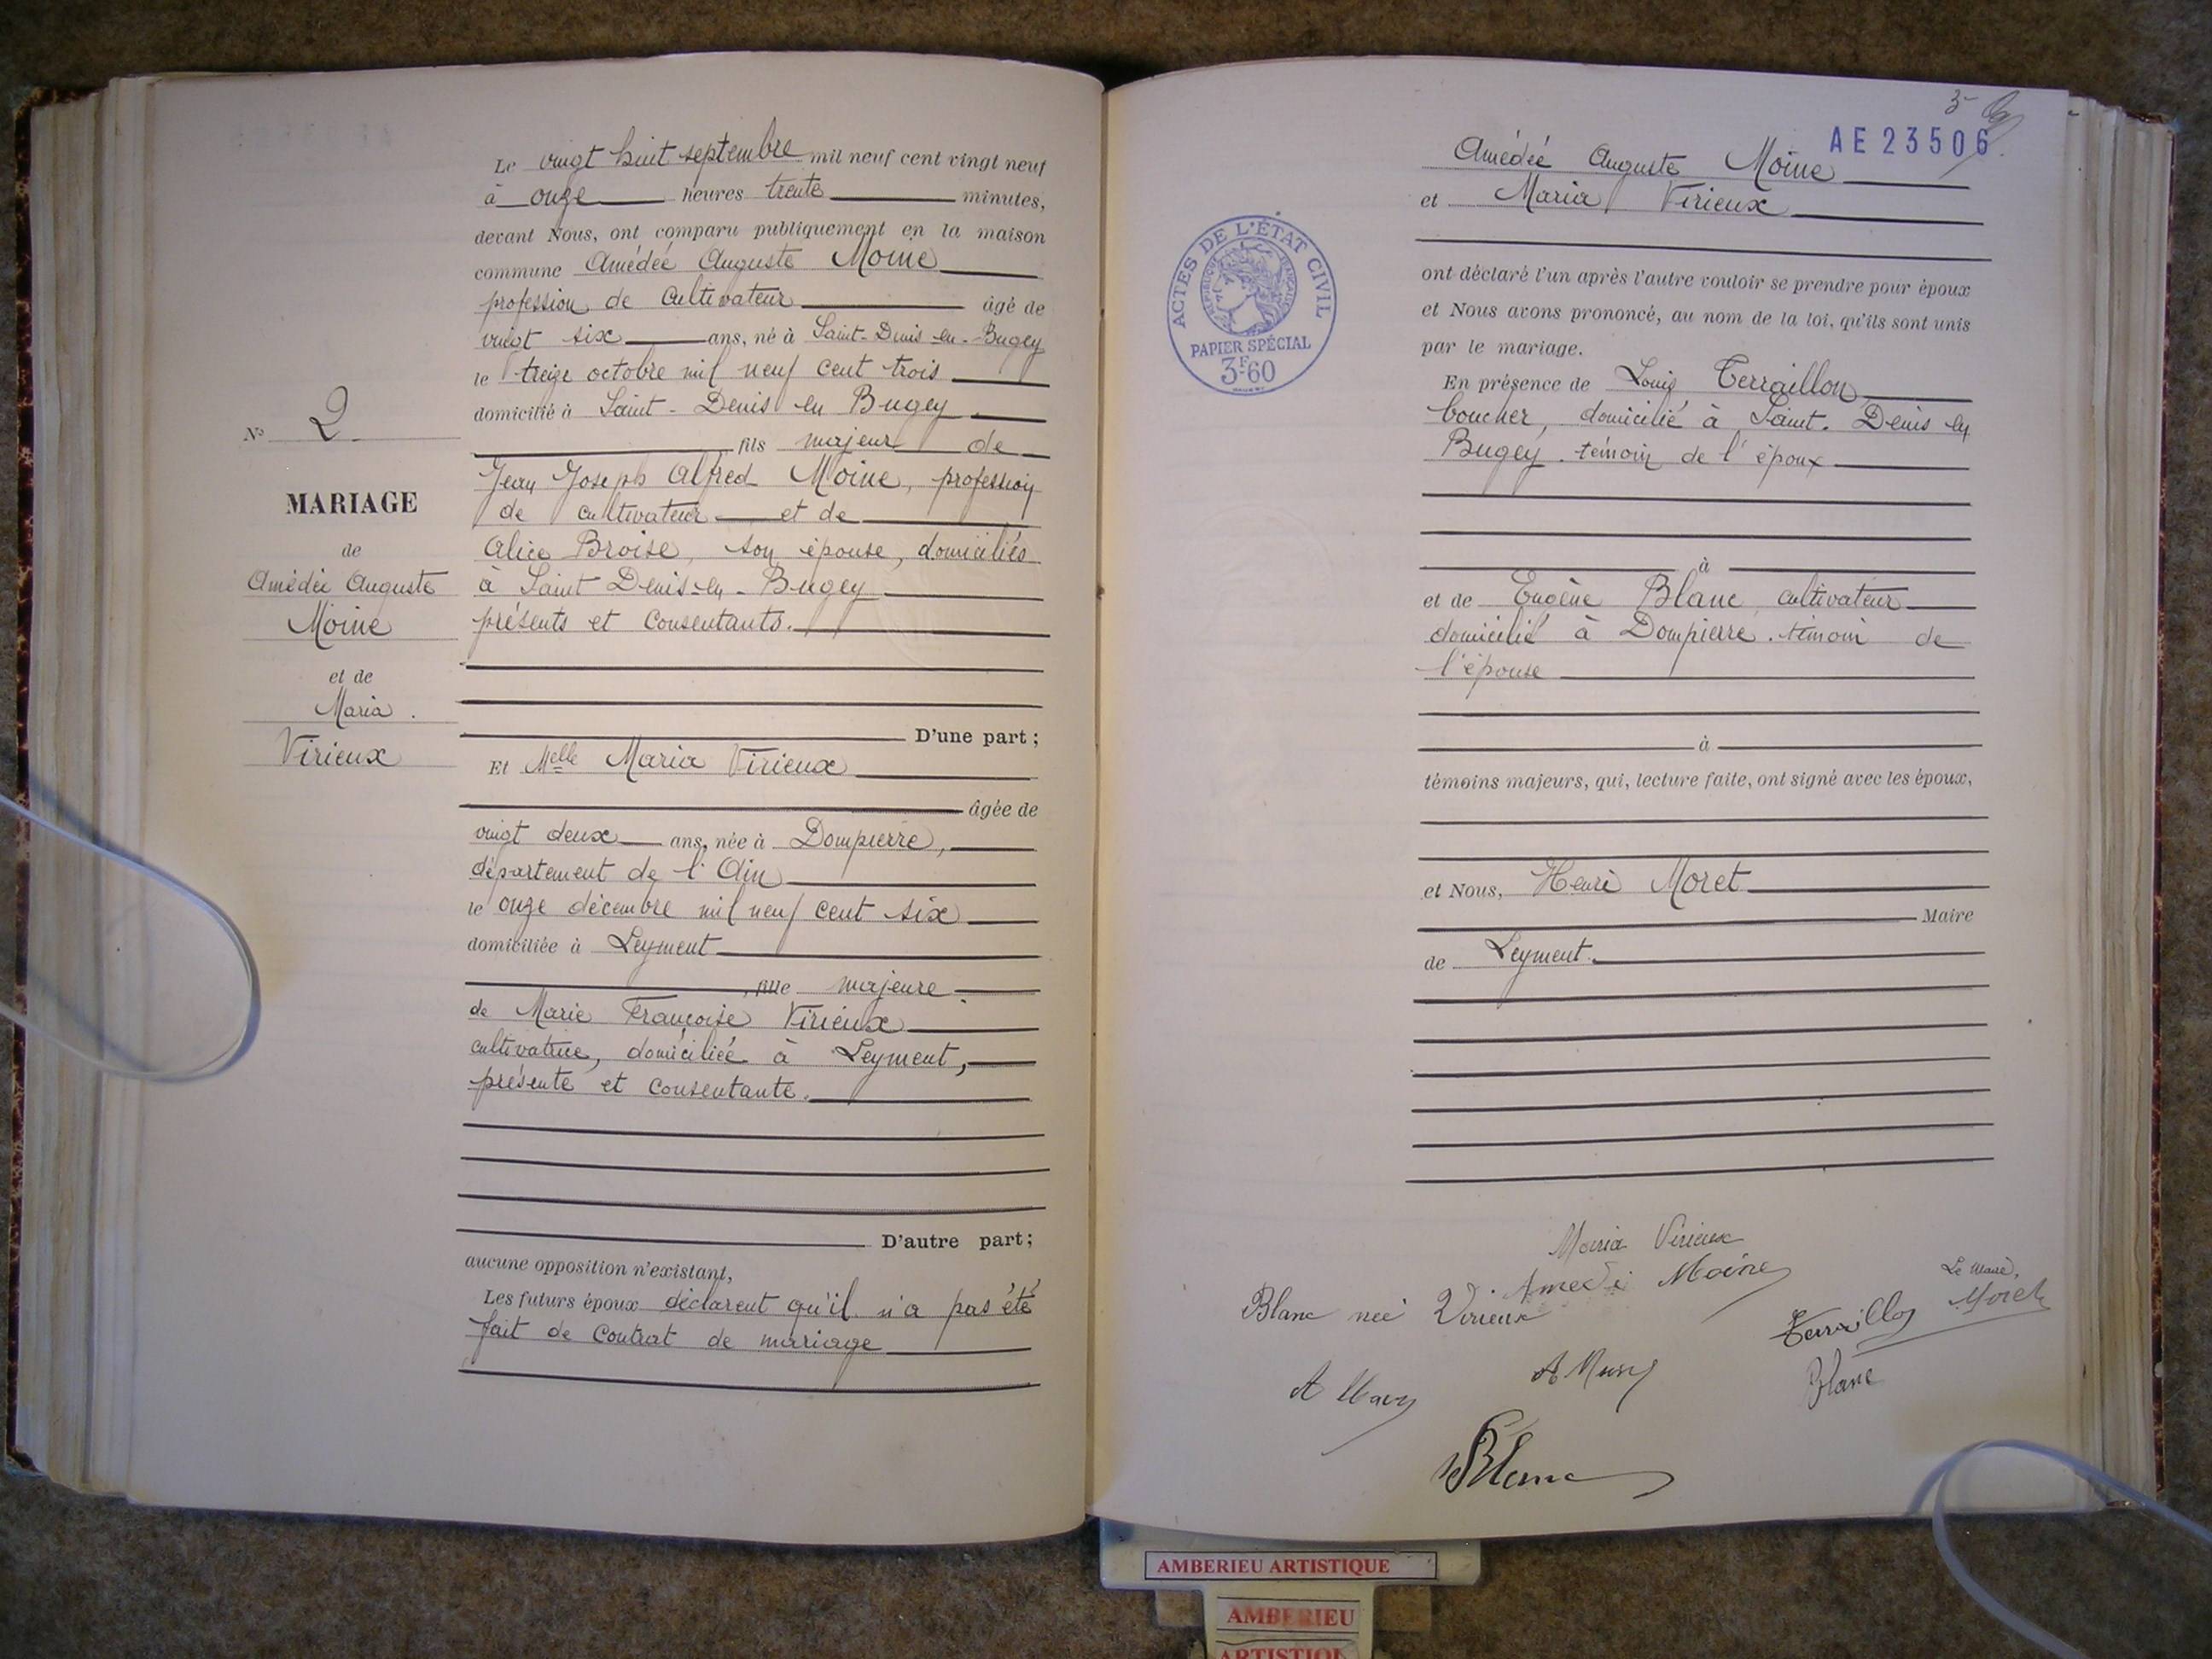 Le vingt huit septembre mil neuf cent vingt neuf
à onze heures trente minutes,
devant Nous, ont comparu publiquement en la maison
commune Amédée Auguste Moine
profession de cultivateur âgé de
vingt six ans, né à Saint-Denis-en-Bugey
le treize octobre mil neuf cent trois
domicilié à Saint-Denis en Bugey
fils majeur de
Jean Joseph Alfred Moine, profession
de cultivateur et de
Alice Broise, son épouse, domiciliés
à Saint Denis-en-Bugey
présents et consentants.
D'une part;
Et Melle Maria Virieux
âgée de
vingt deux ans, née à Dompierre,
département de l'Ain
le onze décembre mil neuf cent six
domiciliée à Leyment
, fille majeure
de Marie Françoise Virieux
cultivatrice, domiciliée à Leyment,
présente et consentante.
D'autre part;
aucune opposition n'existant,
Les futurs époux déclarent qu'il n'a pas été
fait de contrat de mariage
N° 2
MARIAGE
de
Amédée Auguste
Moine
et de
Maria
Virieux
AE 23506
Amédée Auguste Moine
et Maria Virieux
ACTES DE L'ÉTAT CIVIL
RÉPUBLIQUE FRANÇAISE
PAPIER SPÉCIAL
3F60
ont déclaré l'un après l'autre vouloir se prendre pour époux
et Nous avons prononcé, au nom de la loi, qu'ils sont unis
par le mariage.
En présence de Louis Terraillon,
boucher, domicilié à Saint-Denis en
Bugey. témoin de l'époux
à
et de Eugène Blanc, cultivateur
domicilié à Dompierre. témoin de
l'épouse
à
témoins majeurs, qui, lecture faite, ont signé avec les époux,
et Nous, Henri Moret
Maire
de Leyment.
Maria Virieux
Amedé Moine
Blanc neé Virieux
Le Maire,
Moret
Terraillon
Blanc
Blanc
AMBERIEU ARTISTIQUE
AMBERIEU
ARTISTIQUE